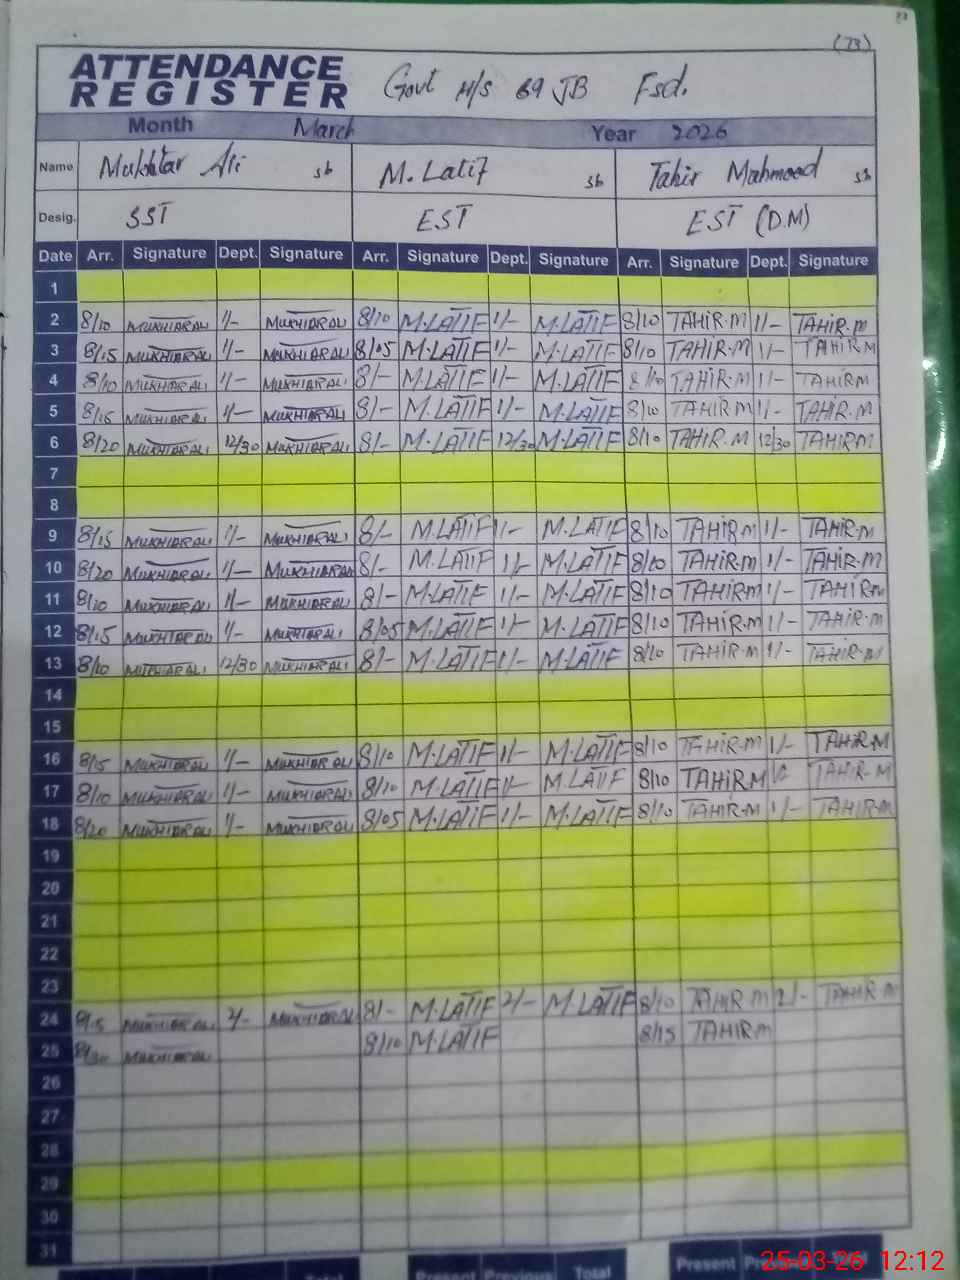 (73)
ATTENDANCE
REGISTER
Govt H/S 69 JB Fsd.
Month March Year 2026
Name Mukhtar Ali sb M. Latif sb Tahir Mahmood sb
Desig. SST EST EST (D.M)
Date Arr. Signature Dept. Signature Arr. Signature Dept. Signature Arr. Signature Dept. Signature
1
2 8/10 MUKHTARALI 1/- MUKHTARALI 8/10 M.LATIF 1/- M.LATIF 8/10 TAHIR.M 1/- TAHIR.M
3 8/15 MUKHTARALI 1/- MUKHTARALI 8/05 M.LATIF 1/- M.LATIF 8/10 TAHIR.M 1/- TAHIRM
4 8/10 MUKHTARALI 1/- MUKHTARALI 8/- M.LATIF 1/- M.LATIF 8/10 TAHIR.M 1/- TAHIRM
5 8/15 MUKHTARALI 1/- MUKHTARALI 8/- M.LATIF 1/- M.LATIF 8/10 TAHIR.M 1/- TAHIR.M
6 8/20 MUKHTARALI 12/30 MUKHTARALI 8/- M.LATIF 12/30 M.LATIF 8/10 TAHIR.M 12/30 TAHIRM
7
8
9 8/15 MUKHTARALI 1/- MUKHTARALI 8/- M.LATIF 1/- M.LATIF 8/10 TAHIR.M 1/- TAHIR.M
10 8/20 MUKHTARALI 1/- MUKHTARALI 8/- M.LATIF 1/- M.LATIF 8/10 TAHIR.M 1/- TAHIR.M
11 8/10 MUKHTARALI 1/- MUKHTARALI 8/- M.LATIF 1/- M.LATIF 8/10 TAHIRM 1/- TAHIRM
12 8/15 MUKHTARALI 1/- MUKHTARALI 8/05 M.LATIF 1/- M.LATIF 8/10 TAHIR.M 1/- TAHIR.M
13 8/10 MUKHTARALI 12/30 MUKHTARALI 8/- M.LATIF 1/- M.LATIF 8/10 TAHIR.M 1/- TAHIR.M
14
15
16 8/15 MUKHTARALI 1/- MUKHTARALI 8/10 M.LATIF 1/- M.LATIF 8/10 TAHIR.M 1/- TAHIR.M
17 8/10 MUKHTARALI 1/- MUKHTARALI 8/10 M.LATIF 1/- M.LATIF 8/10 TAHIRM TAHIR.M
18 8/20 MUKHTARALI 1/- MUKHTARALI 8/05 M.LATIF 1/- M.LATIF 8/10 TAHIR.M 1/- TAHIR.M
19
20
21
22
23
24 MUKHTARALI 2/- MUKHTARALI 8/- M.LATIF 2/- M.LATIF 8/10 TAHIR M 2/- TAHIR M
25 8/30 MUKHTARALI 8/10 M.LATIF 8/15 TAHIRM
26
27
28
29
30
31
Total Present Previous Total Present
25-03-26 12:12